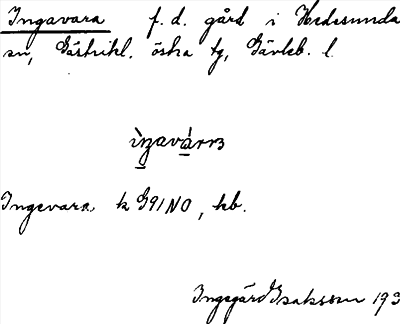 Ingavara f. d. gård i Hedesunda
sn, Gästrikl. östra tg, Gävleb. l.
Ingevara k G91NO, hb.
Ingegärd Isaksson 193